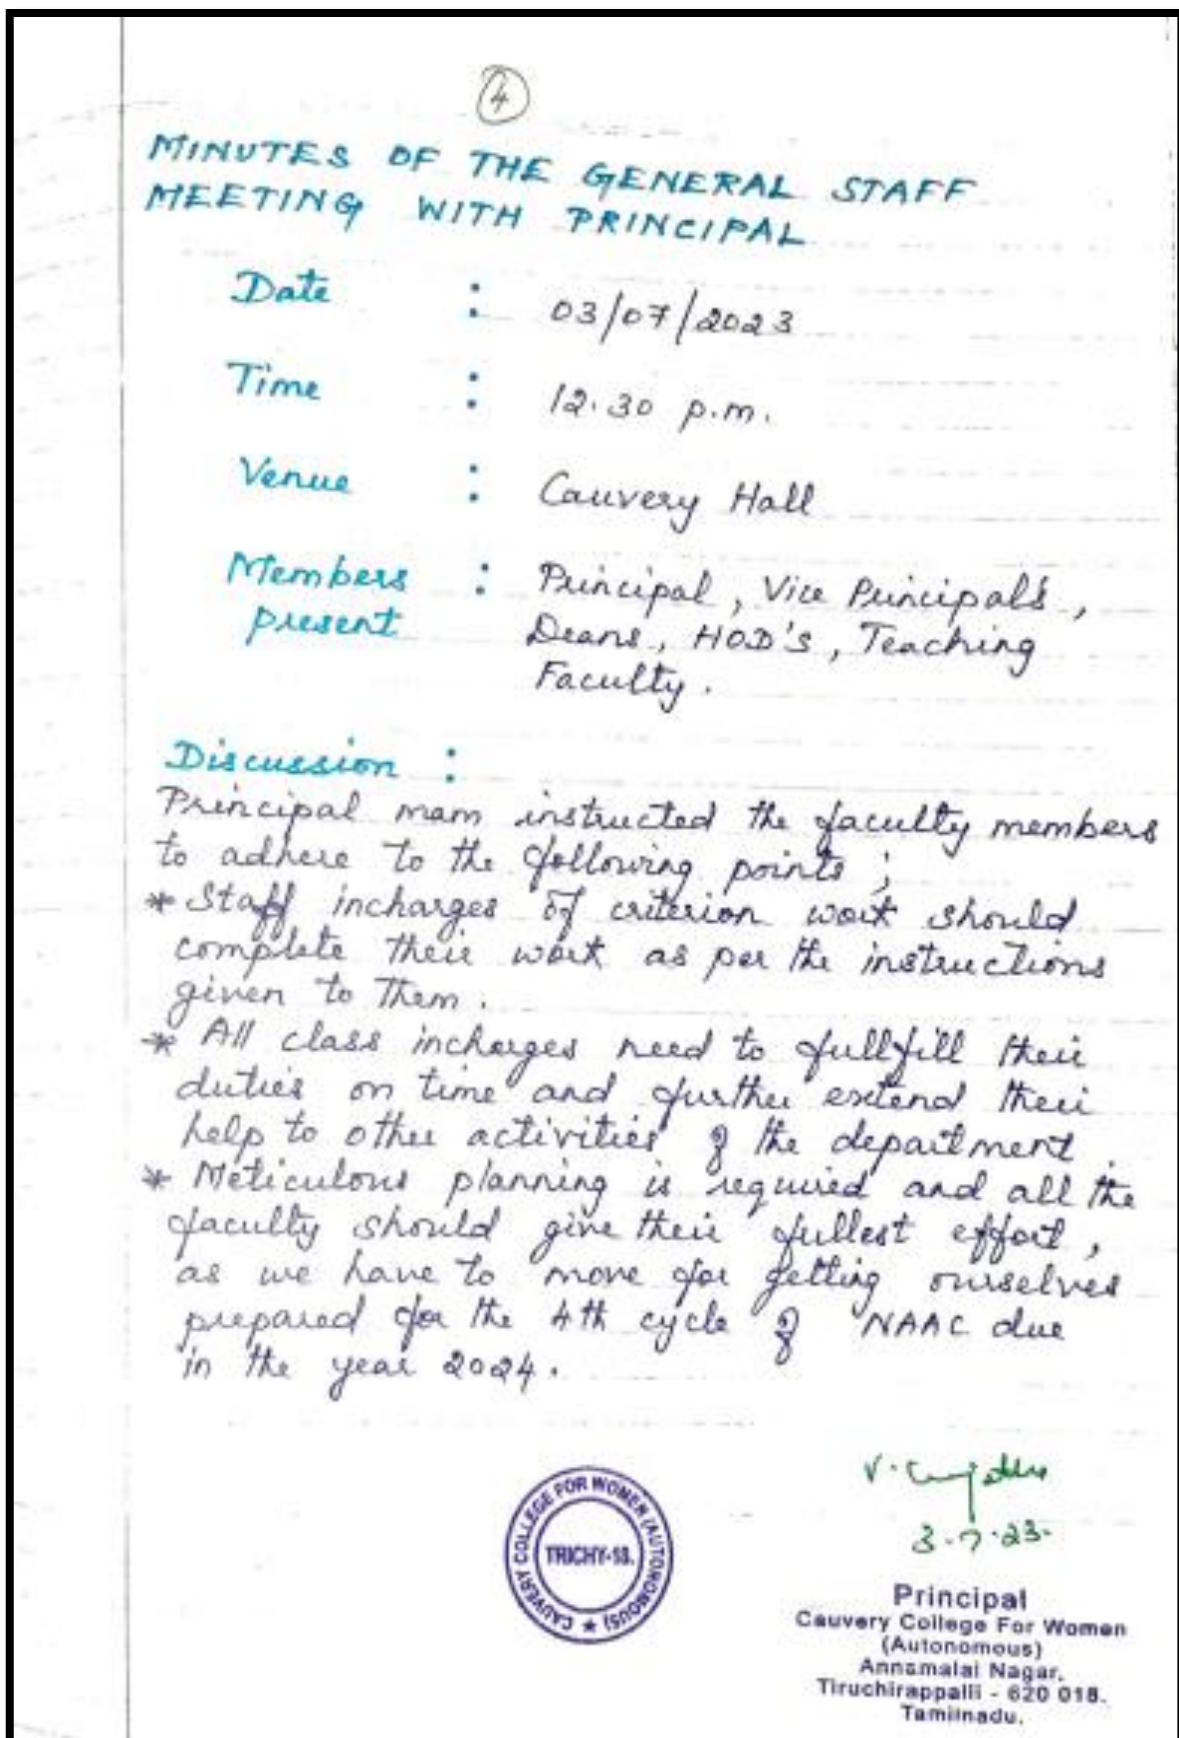 4
MINUTES OF THE GENERAL STAFF
MEETING WITH PRINCIPAL
Date : 03/07/2023
Time : 12.30 p.m.
Venue : Cauvery Hall
Members : Principal, Vice Principal's,
present Deans, HOD's, Teaching
Faculty.
Discussion :
Principal mam instructed the faculty members
to adhere to the following points ;
* Staff incharges of criterion work should
complete their work as per the instructions
given to them.
* All class incharges need to fullfill their
duties on time and further extend their
help to other activities of the department.
* Meticulous planning is required and all the
faculty should give their fullest effort,
as we have to move for getting ourselves
prepared for the 4th cycle of NAAC due
in the year 2024.
V.
3.7.23.
CAUVERY COLLEGE FOR WOMEN (AUTONOMOUS) ★
TRICHY-18.
Principal
Cauvery College For Women
(Autonomous)
Annamalai Nagar,
Tiruchirappalli - 620 018.
Tamilnadu.